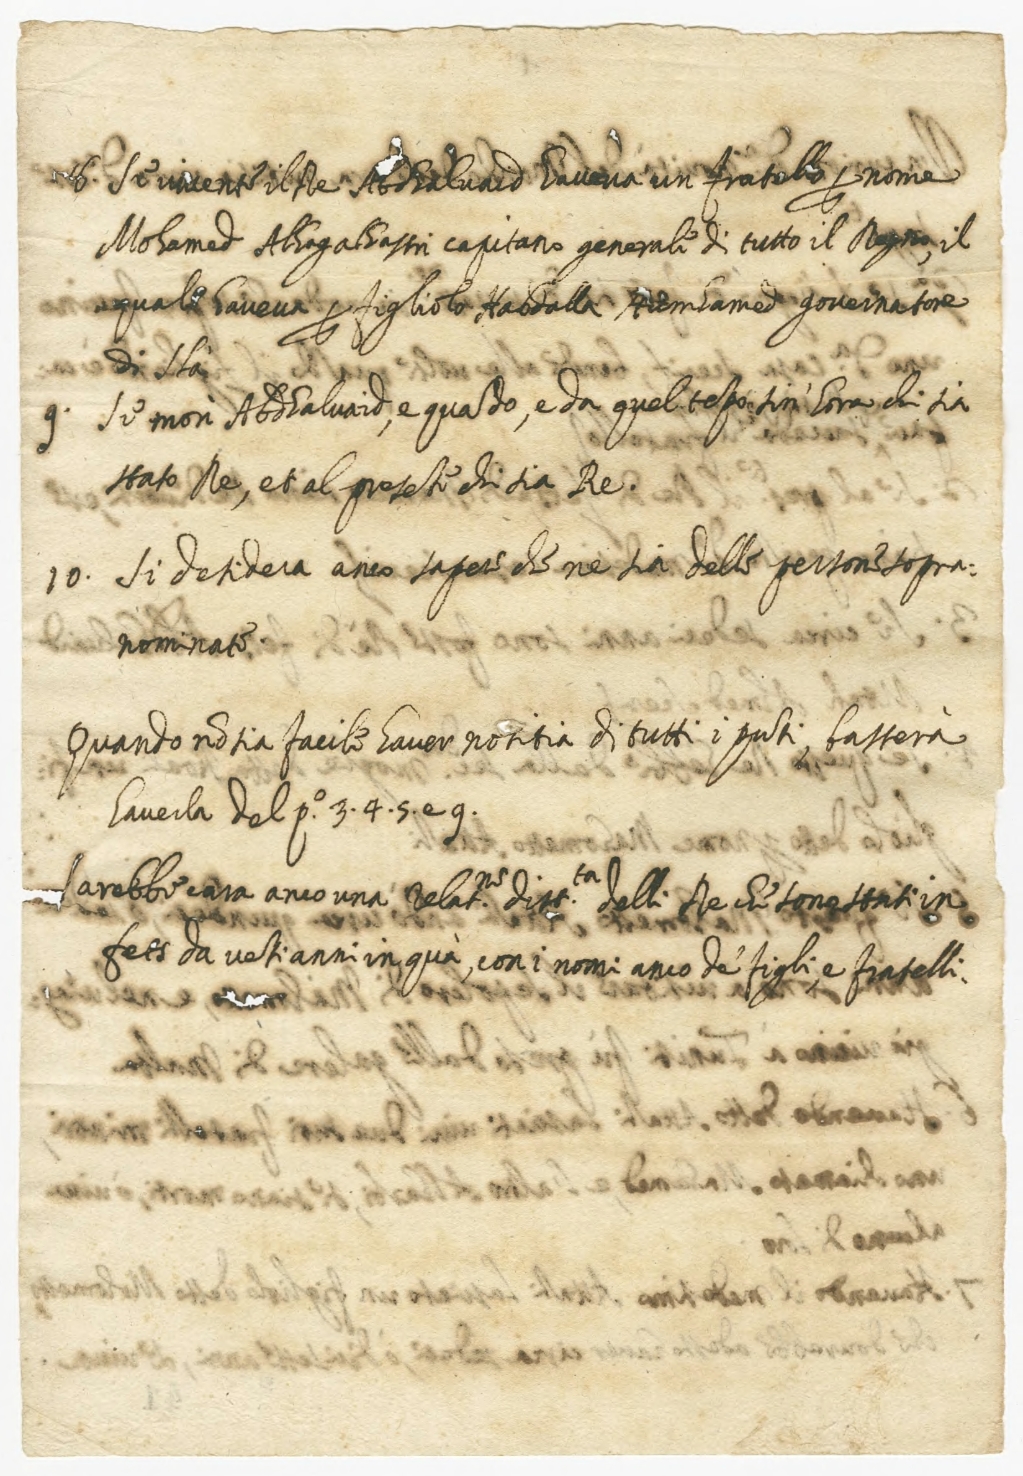 8. Se vivente il Re Abdhaluaid haveva un fratello p nome
Mohamed Alhagalhastri capitano generale di tutto il Regno, il
quale haveva p figliolo Habdalla governatore
di Sla
9. Se morì Abdhaluaid, e quãdo, e da quel tẽpo sin' hora chi sia
stato Re, et al presẽte chi sia Re.
10. Si desidera anco sapere che ne sia delle persone sopra=
nominate.
Quando nõ sia facile haver notitia di tutti i pũti, basterà
haverla del p.º 3. 4. 5. e 9.
Sarebbe cara anco una relat.ne dist.ta delli Re che sono stati in
fess da vẽti anni in quà, con i nomi anco de' figli, e fratelli.